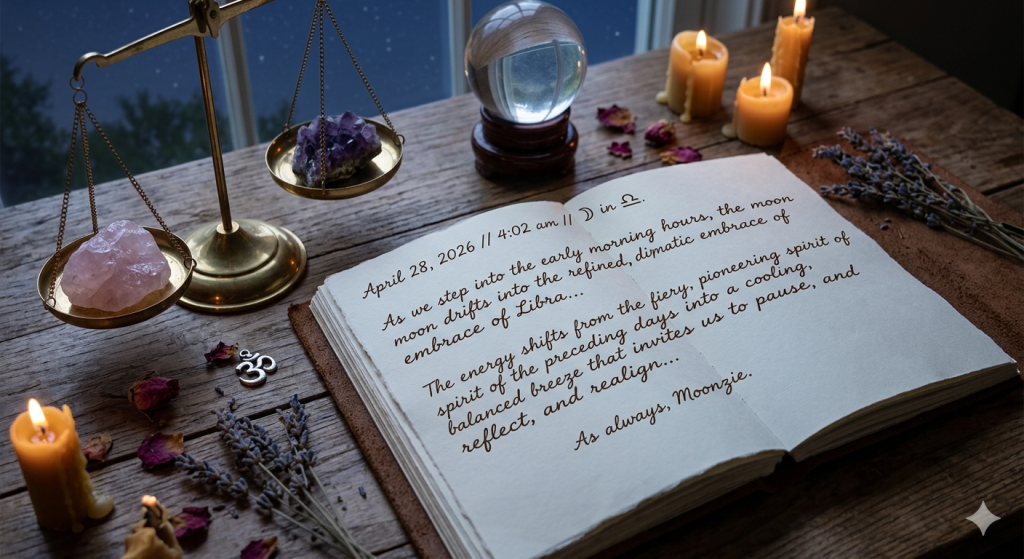 April 28, 2026 // 4:02 am // ☽ in ♎.
As we step into the early morning hours, the moon
moon drifts into the refined, dimatic embrace of
embrace of Libra...
The energy shifts from the fiery, pioneering spirit of
spirit of the preceding days into a cooling,
balanced breeze that invites us to pause, and
reflect, and realign...
As always, Moonzie.